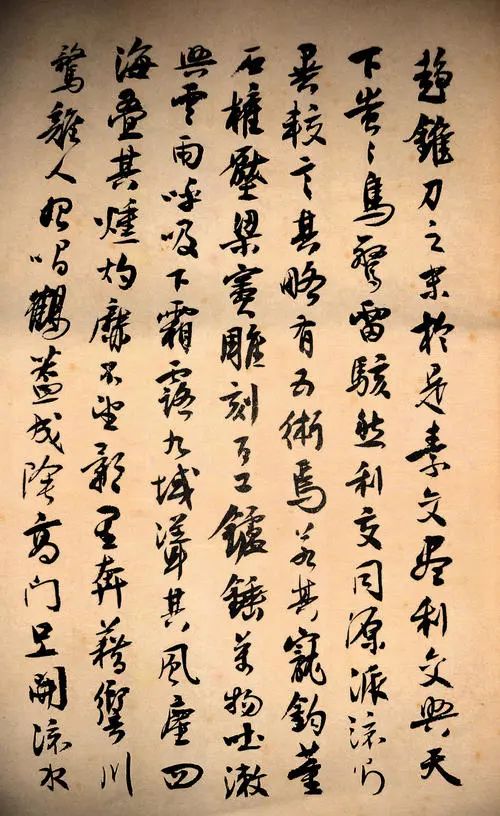 趨錐刀之末於是素交盡利交興天
下蚩〻鳥驚雷駭然利交同源派流則
異較言其略有五術焉若其寵鈞董
石權壓梁竇雕刻百工鑪錘萬物吐漱
興雲雨呼吸下霜露九域聳其風塵四
海疊其燻灼靡不望影星奔藉響川
鶩雞人始唱鶴蓋成陰高門旦開流水